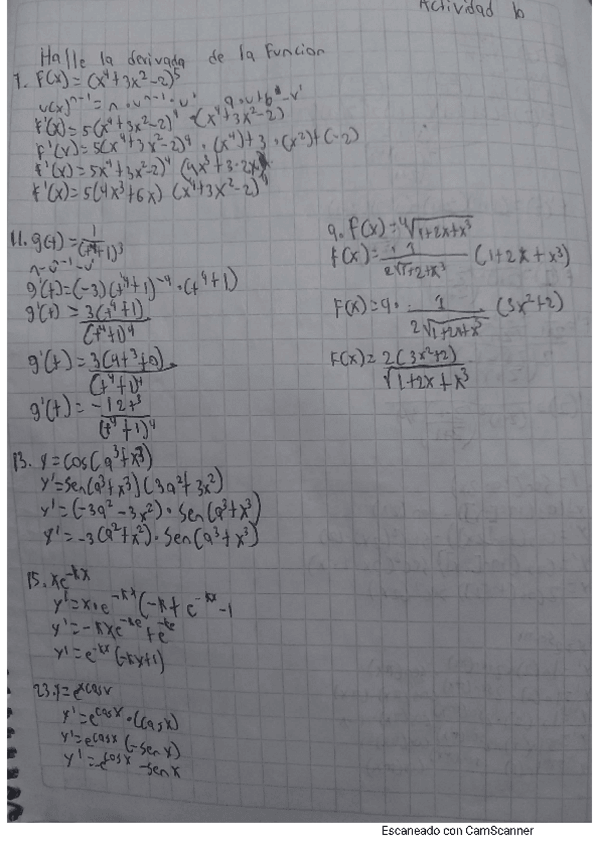 Actividad 6
Halle la derivada de la Funcion
7. F(x) = (x⁴+3x²-2)⁵
u(x)ⁿ⁻¹ = n · uⁿ⁻¹ · u'
F'(x) = 5(x⁴+3x²-2)⁴ · (x⁴+3x²-2)
F'(x) = 5(x⁴+3x²-2)⁴ · (x⁴)+3 · (x²)+(-2)
F'(x) = 5x⁴+3x²-2)⁴ (4x³+3·2x)
F'(x) = 5(4x³+6x) (x⁴+3x²-2)⁴
11. g(t) = 1/(t⁴+1)³
n-uⁿ⁻¹-u'
g'(t) = (-3)(t⁴+1)⁻⁴ · (t⁴+1)
g'(t) = 3(t⁴+1)/(t⁴+1)⁴
g'(t) = 3(4t³+0)/(t⁴+1)⁴
g'(t) = -12t³/(t⁴+1)⁴
9. F(x) = ⁴√1+2x+x³
F(x) = 1/2√1+2+x³ (1+2x+x³)
F(x) = 4 · 1/2√1+2x+x³ (3x²+2)
F(x) = 2(3x²+2)/√1+2x+x³
13. y = cos(a³+x³)
y' = sen(a³+x³)(3a²+3x²)
y' = (-3a²-3x²) · sen(a³+x³)
y' = -3(a²+x²) · sen(a³+x³)
15. xe⁻ᵏˣ
y' = x · e⁻ᵏˣ (-k + e⁻ᵏˣ - 1
y' = -kxe⁻ᵏᵉ + e⁻ᵏᵉ
y' = e⁻ᵏˣ (-kx+1)
23. y = e^xcosx
y' = e^cosx · (cosx)
y' = e^cosx (-senx)
y' = -e^cosx -senx
Escaneado con CamScanner